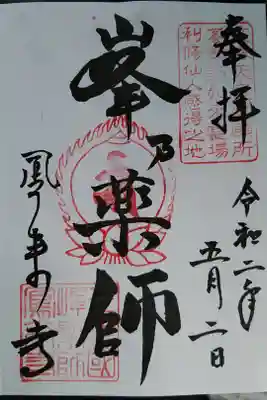 奉拝
利修仙人感得之地
令和二年
五月二日
峯乃薬師
鳳来寺